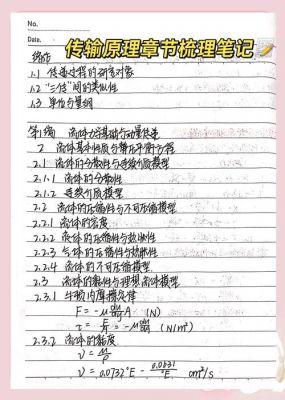 No.
Date.
传输原理章节梳理笔记📝
绪论
1.1 传递过程的研究对象
1.2 "三传"间的类似性
1.3 单位与量纲
第1编 流体力学基础与动量传递
2 流体基本性质与静压平衡方程
2.1 流体的分散性与连续介质模型
2.1.1 流体的分散性
2.1.2 连续介质模型
2.2 流体的压缩性与不可压缩模型
2.2.1 流体的密度
2.2.2 流体的压缩性与热胀性
2.2.3 气体的压缩性与热胀性
2.2.4 流体的不可压缩模型
2.3 流体的黏性与理想流体模型
2.3.1 牛顿内摩擦定律
(N)
(N/m²)
2.3.2 流体的黏度
ν = μ/ρ
ν = 0.0732°E − 0.0631/°E cm²/s